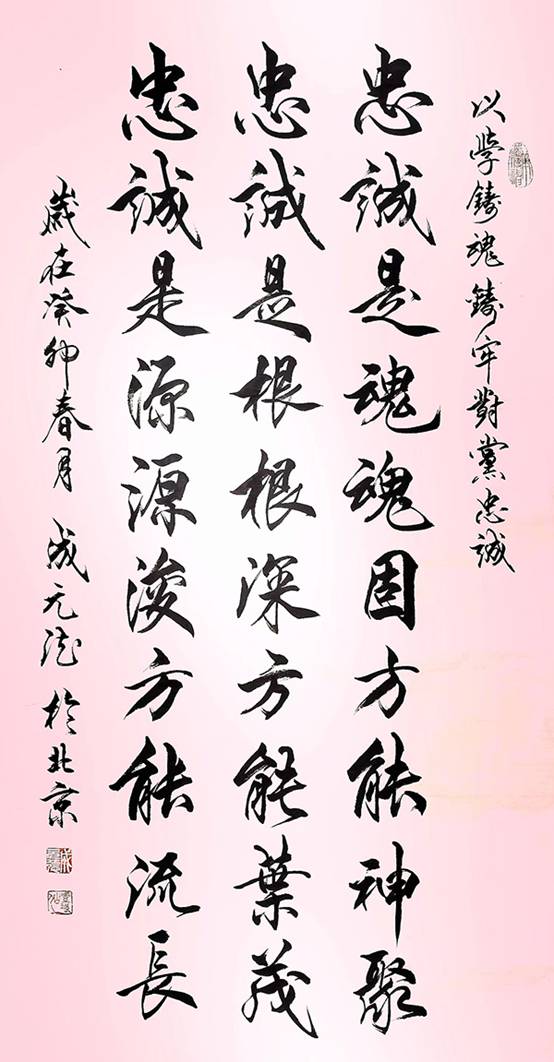 以學鑄魂鑄牢對黨忠誠
忠誠是魂魂固方能神聚
忠誠是根根深方能葉茂
忠誠是源源浚方能流長
歲在癸卯春月 成元法 於北京